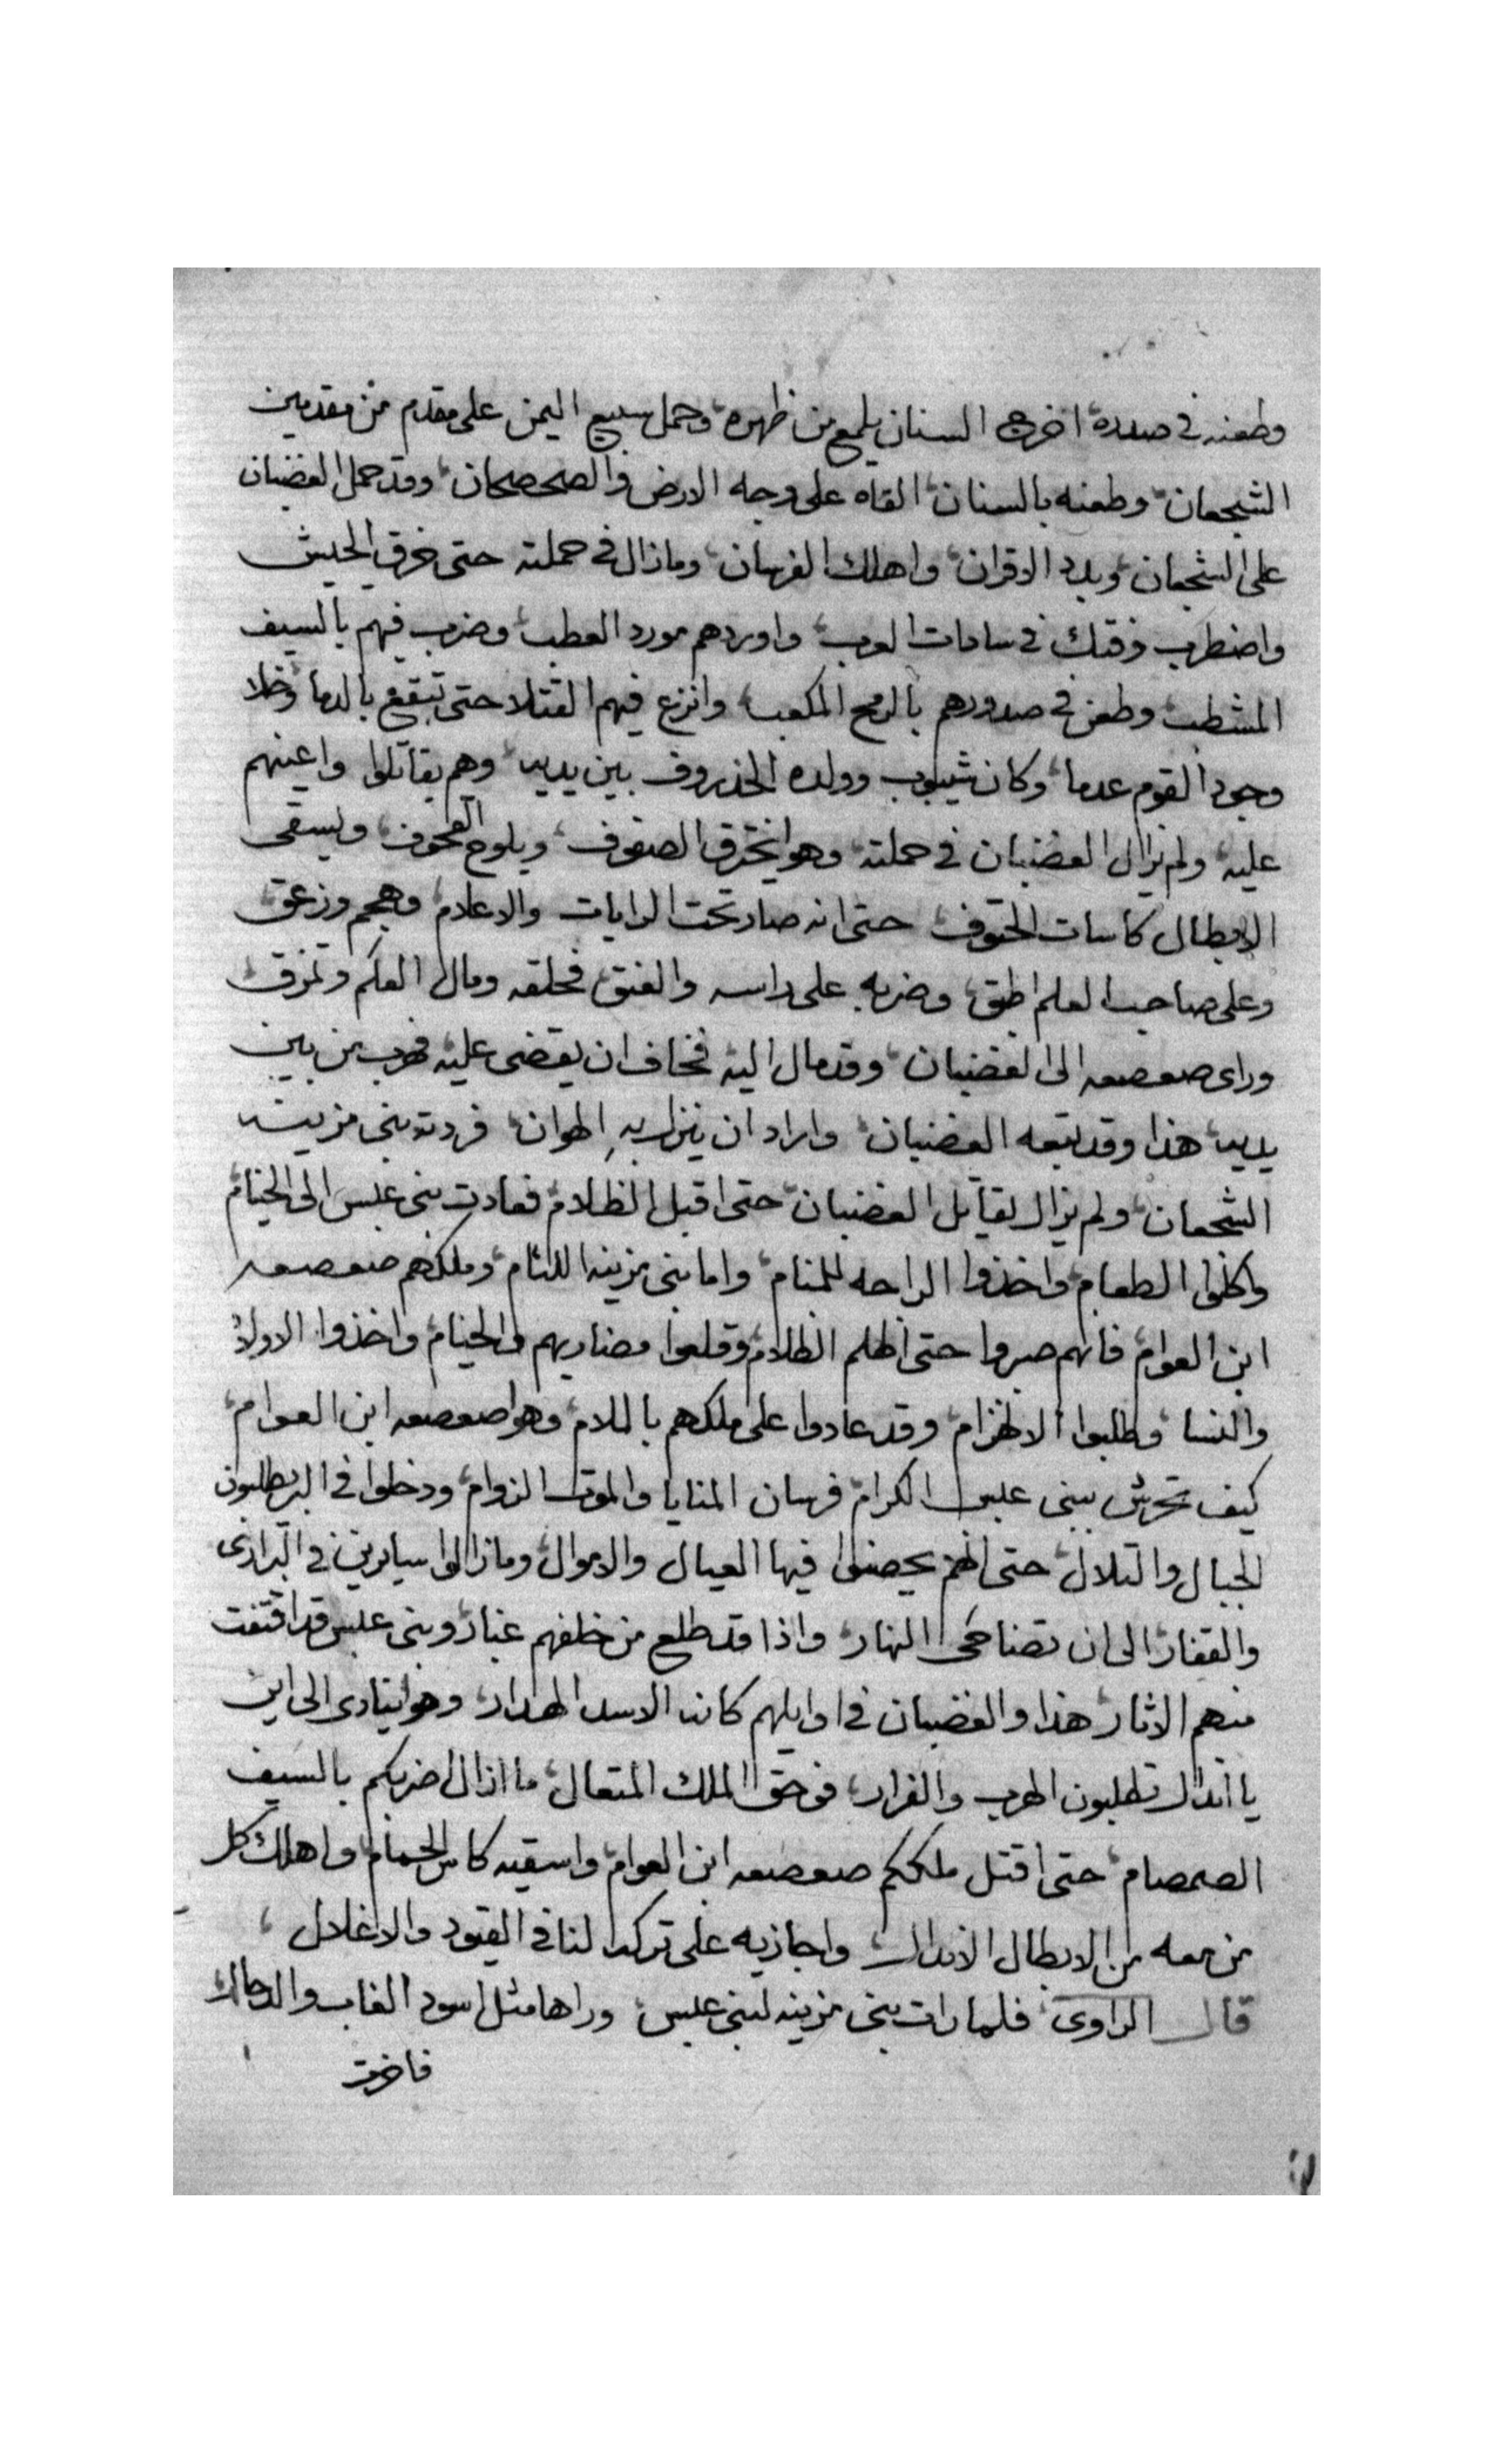 وطعنه في صدره اخرج السنان يلمع من ظهره وحمل سبيع اليمن على مقدم من مقدمين
الشجعان وطعنه بالسنان القاه على وجه الارض والصحصحان وقد حمل الغضبان
على الشجعان وبدد الاقران واهلك الفرسان وما زال في حملته حتى خرق الجيش
واضطرب وفتك في سادات العرب واوردهم مورد العطب وضرب فيهم بالسيف
المشطب وطعن في صدورهم بالرمح المكعب وانزع فيهم القتلا حتى تبقع بالدما وخلا
وجود القوم عدما وكان شيبوب وولده الخذروف بين يديه وهم يقاتلوا واعينهم
عليه ولم يزال الغضبان في حملته وهوا يخترق الصفوف ويلوح القحوف ويسقى
الابطال كاسات الحتوف حتى انه صار تحت الرايات والاعلام وهجم وزعق
وعلى صاحب العلم اطبق وضربه على راسه والعنق فحلقه ومال العلم وتمزق
وراى صعصعه الى الغضبان وقد مال اليه فخاف ان يقضى عليه فهرب من بين
يديه هذا وقد تبعه الغضبان واراد ان ينزل به الهوان فردته بنى مزينه
الشجعان ولم يزال يقاتل الغضبان حتى اقبل الظلام فعادت بنى عبس الى الخيام
واكلوا الطعام واخذوا الراحه للمنام واما بنى مزينه اللئام وملكهم صعصعه
ابن العوام فانهم صبروا حتى اظلم الظلام وقلعوا مضاربهم والخيام واخذوا الاولاد
والنسا وطلبوا الانهزام وقد عادوا على ملكهم بالملام وهوا صعصعه ابن العوام
كيف تحرش ببنى عبس الكرام فرسان المنايا والموت الزوام ودخلوا في البر يطلبون
الجبال والتلال حتى انهم يحصنوا فيها العيال والاموال وما زالوا سايرين في البرارى
والقفار الى ان تضاحى النهار واذا قد طلع من خلفهم غبار وبنى عبس قد اقتفت
منهم الاثار هذا والغضبان في اوايلهم كانه الاسد الهدار وهوا ينادى الى اين
يا اندال تطلبون الهرب والفرار فوحق الملك المتعال ما ازال اضربكم بالسيف
الصمصام حتى اقتل ملككم صعصعه ابن العوام واسقيه كاس الحمام واهلك كل
من معه من الابطال الاندال واجازيه على تركه لنا في القيود والاغلال
قال الراوى فلما رات بنى مزينه لبنى عبس وراها مثل اسود الغاب والدحال